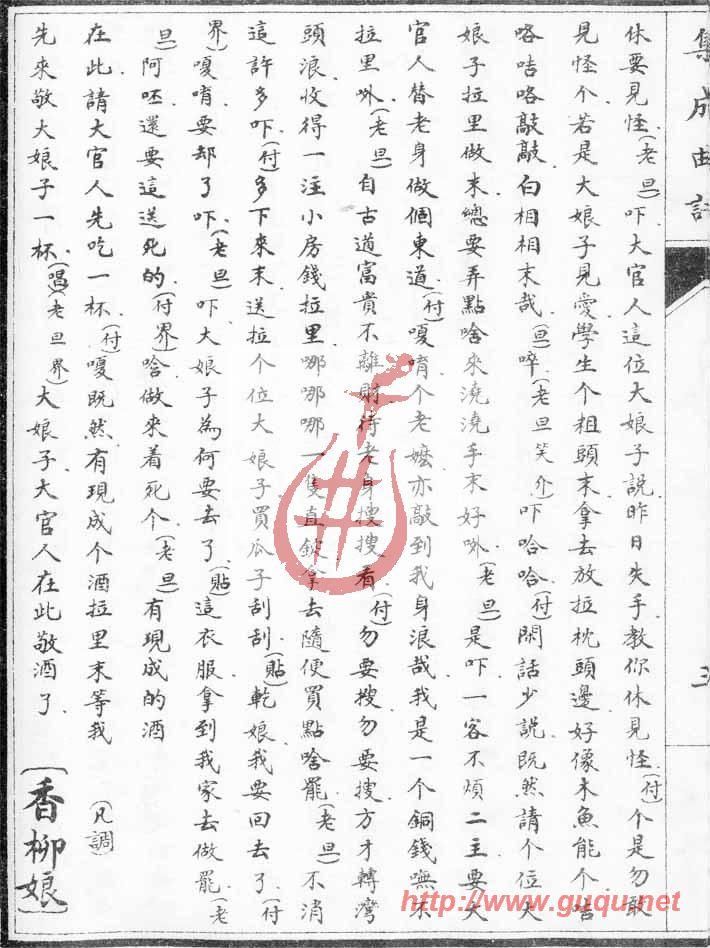 集成曲譜
三
休要見怪(老旦)吓大官人這位大娘子説昨日失手教你休見怪(付)个是勿敢
見怪个若是大娘子見愛學生个粗頭末拿去放拉枕頭邊好像木魚能个咭
咯咭咯敲敲白相相末哉(旦)啐(老旦笑介)吓哈哈(付)閑話少説既然請个位大
娘子拉里做末總要弄點啥來澆澆手末好㖸(老旦)是吓一客不煩二主要大
官人替老身做個東道(付)嗄唷个老嬤亦敲到我身浪哉我是一个銅錢嘸不
拉里㖸(老旦)自古道富貴不離財待老身搜搜看(付)勿要搜勿要搜方才轉灣
頭浪收得一注小房錢拉里哪哪哪一隻直錠拿去隨便買點啥罷(老旦)不消
這許多吓(付)多下來末送拉个位大娘子買瓜子刮刮(貼)乾娘我要回去了(付
界)嗄唷要却了吓(老旦)吓大娘子為何要去了(貼)這衣服拿到我家去做罷(老
旦)阿呸還要這送死的(付界)啥做來着死个(老旦)有現成的酒
在此請大官人先吃一杯(付)嗄既然有現成个酒拉里末等我
先來敬大娘子一杯(唱)(老旦界)大娘子大官人在此敬酒了
(凡調)
〔香柳娘〕
http://www.guqu.net